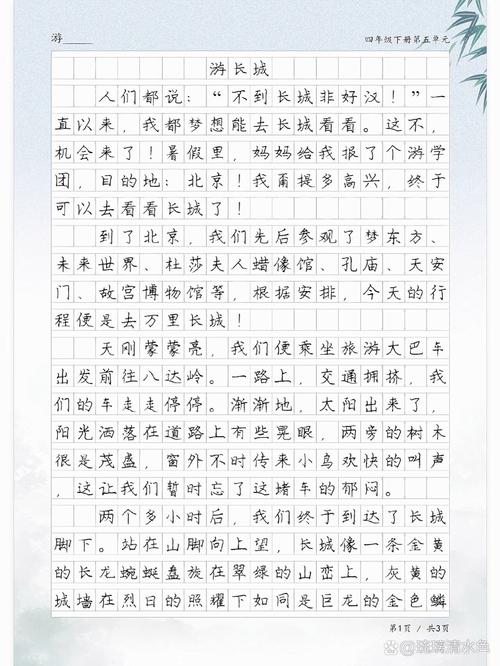 游____
四年级下册第五单元
游长城
人们都说：“不到长城非好汉！”一
直以来，我都梦想能去长城看看。这不，
机会来了！暑假里，妈妈给我报了个游学
团，目的地：北京！我甭提多高兴，终于
可以去看看长城了！
到了北京，我们先后参观了梦东方、
未来世界、杜莎夫人蜡像馆、孔庙、天安
门、故宫博物馆等，根据安排，今天的行
程便是去万里长城！
天刚蒙蒙亮，我们便乘坐旅游大巴车
出发前往八达岭。一路上，交通拥挤，我
们的车走走停停。渐渐地，太阳出来了，
阳光洒落在道路上有些晃眼，两旁的树木
很是茂盛，窗外不时传来小鸟欢快的叫声
，这让我们暂时忘了这堵车的郁闷。
两个多小时后，我们终于到达了长城
脚下。站在山脚向上望，长城像一条金黄
的长龙蜿蜒盘旋在翠绿的山峦上，灰黄的
城墙在烈日的照耀下如同是巨龙的金色鳞
第1页 / 共3页
琉璃清水鱼